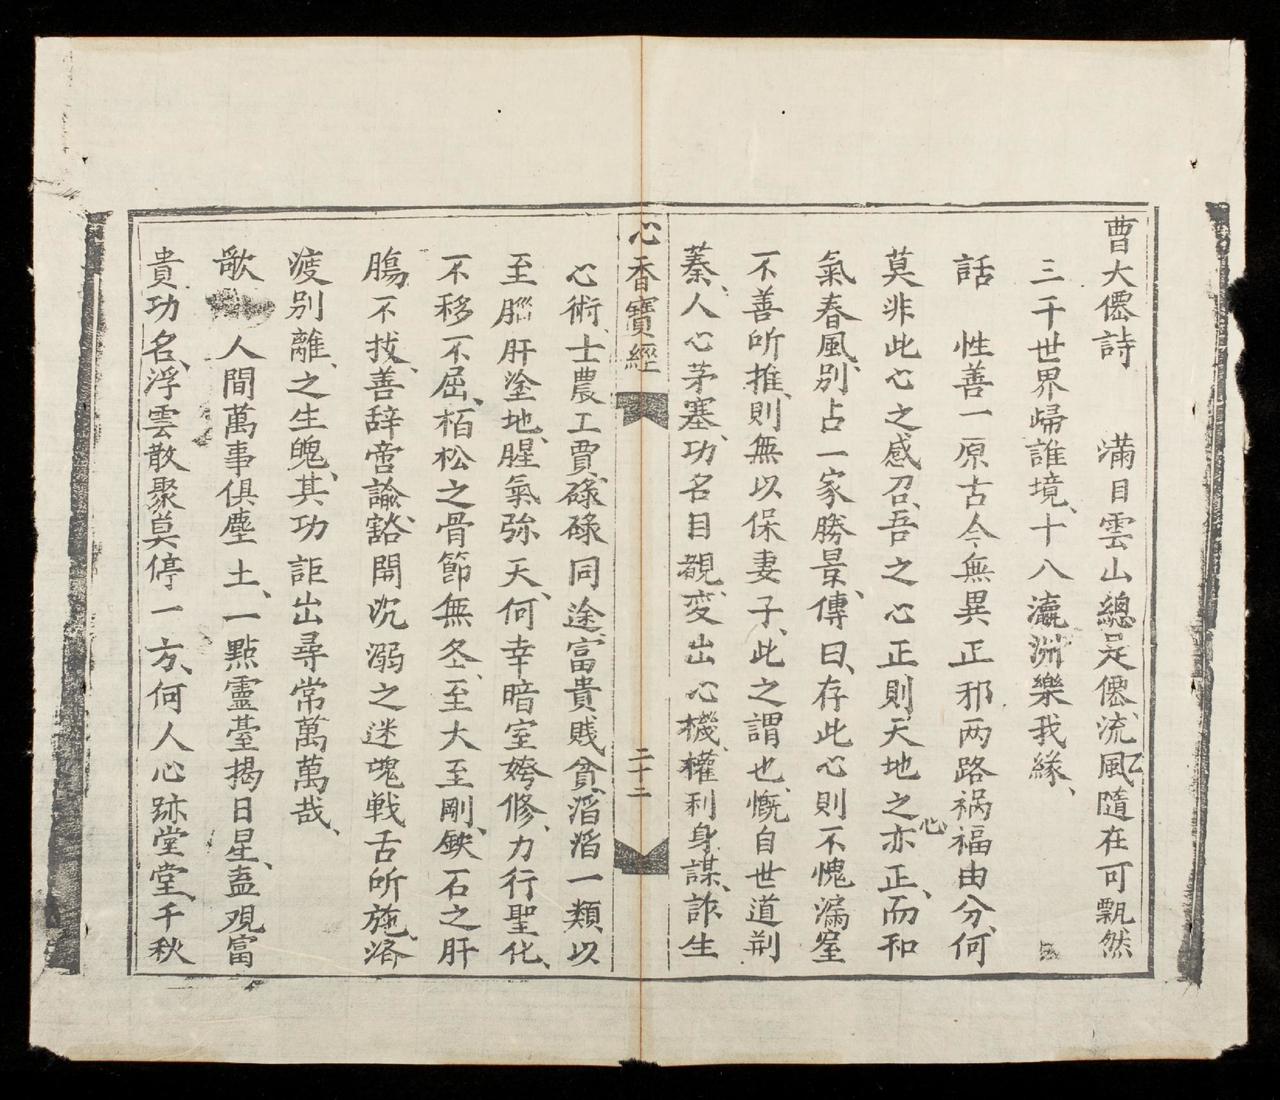 曹大僊詩　滿目雲山總是僊流風乙隨在可飄然
三千世界歸誰境、十八瀛洲樂我緣、
話　性善一原古今無異正邪两路禍福由分、何
莫非此心之感召、吾之心正則天地之心亦正、而和
氣春風、別占一家勝景、傳曰、存此心則不愧漏室
不善所推、則無以保妻子、此之謂也、慨自世道荊
蓁、人心茅塞、功名目覩、变出心機、權利身謀、詐生
心香寶經
二十二
心術、士農工賈、碌碌同途、富貴賤貧、滔滔一類、以
至腦肝塗地、腥氣弥天、何幸暗室姱修、力行聖化、
不移不屈、栢松之骨節無冬、至大至剛、鉄石之肝
腸不拔、善辞啻諭、豁開沉溺之迷魂、戦舌所施、洛
疲别離、之生魄、其功詎出尋常萬萬哉、
歌　人間萬事俱塵土、一點靈臺揭日星、盍观富
貴功名、浮雲散聚莫停一方、何人心跡堂堂、千秋